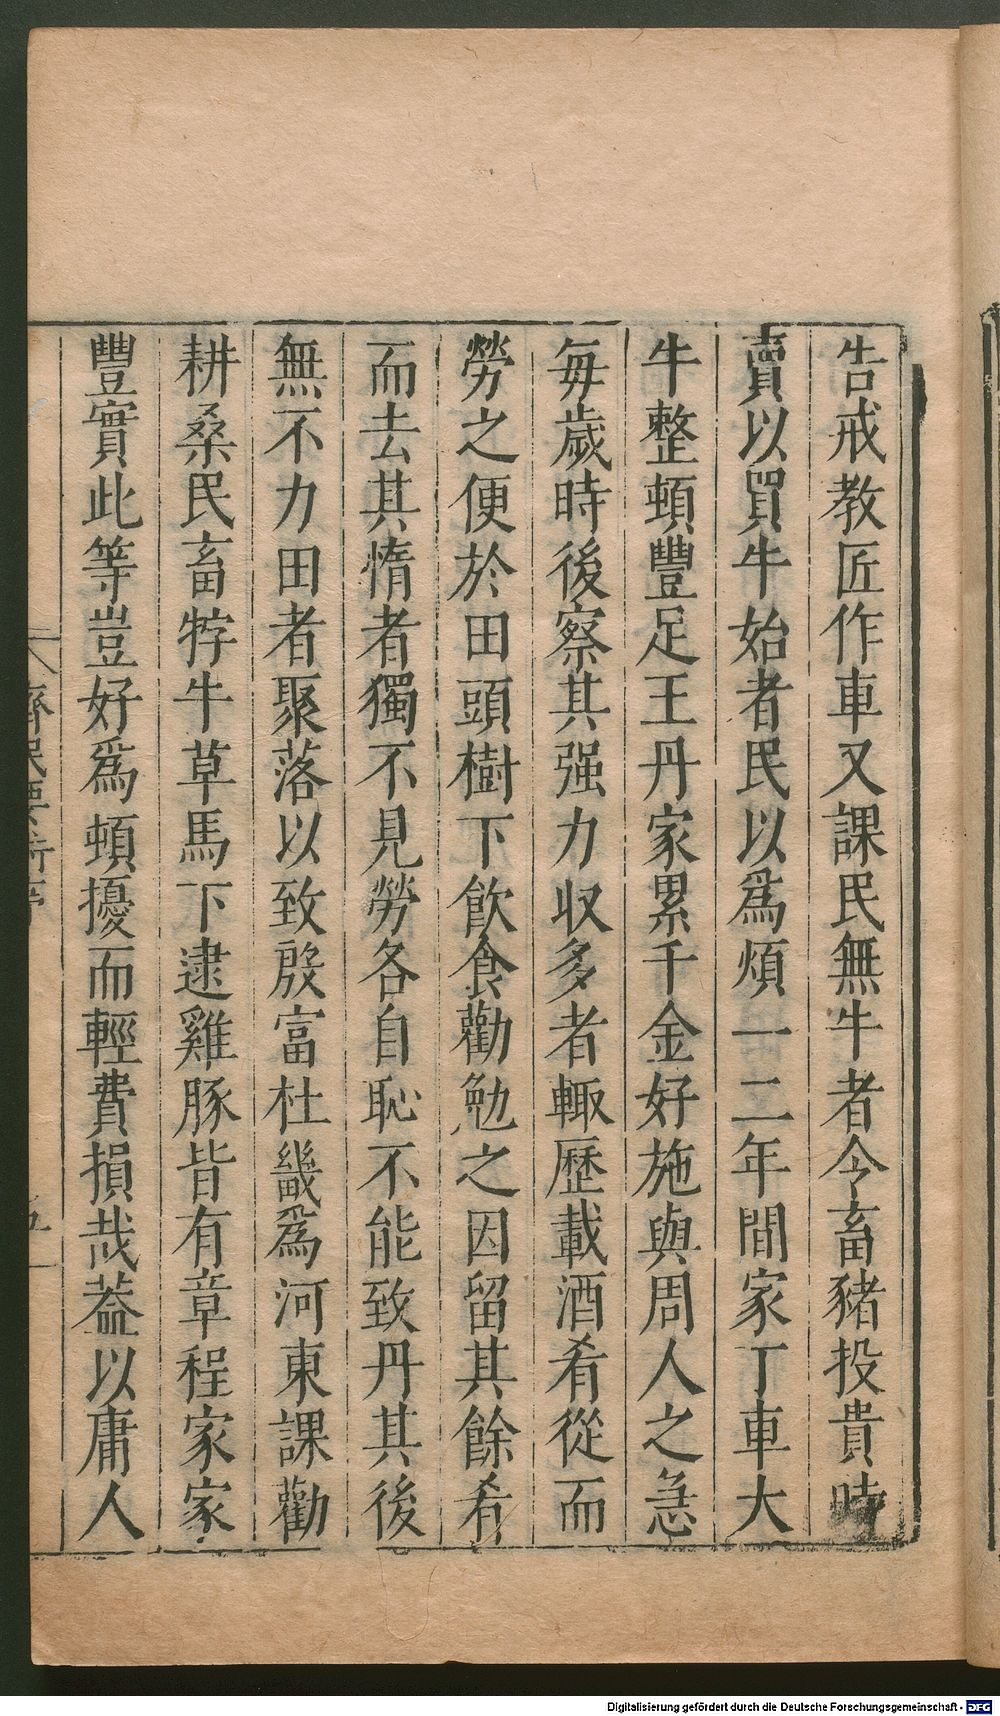 告戒教匠作車又課民無牛者令畜豬投貴時
賣以買牛始者民以爲煩一二年間家丁車大
牛整頓豐足王丹家累千金好施與周人之急
每歲時後察其强力収多者輙歷載酒肴從而
勞之便於田頭樹下飲食勸勉之因留其餘肴
而去其惰者獨不見勞各自恥不能致丹其後
無不力田者聚落以致殷富杜畿爲河東課勸
耕桑民畜牸牛草馬下逮雞豚皆有章程家家
豐實此等豈好爲頓擾而輕費損哉葢以庸人
齊民要術序
五
Digitalisierung gefördert durch die Deutsche Forschungsgemeinschaft - DFG